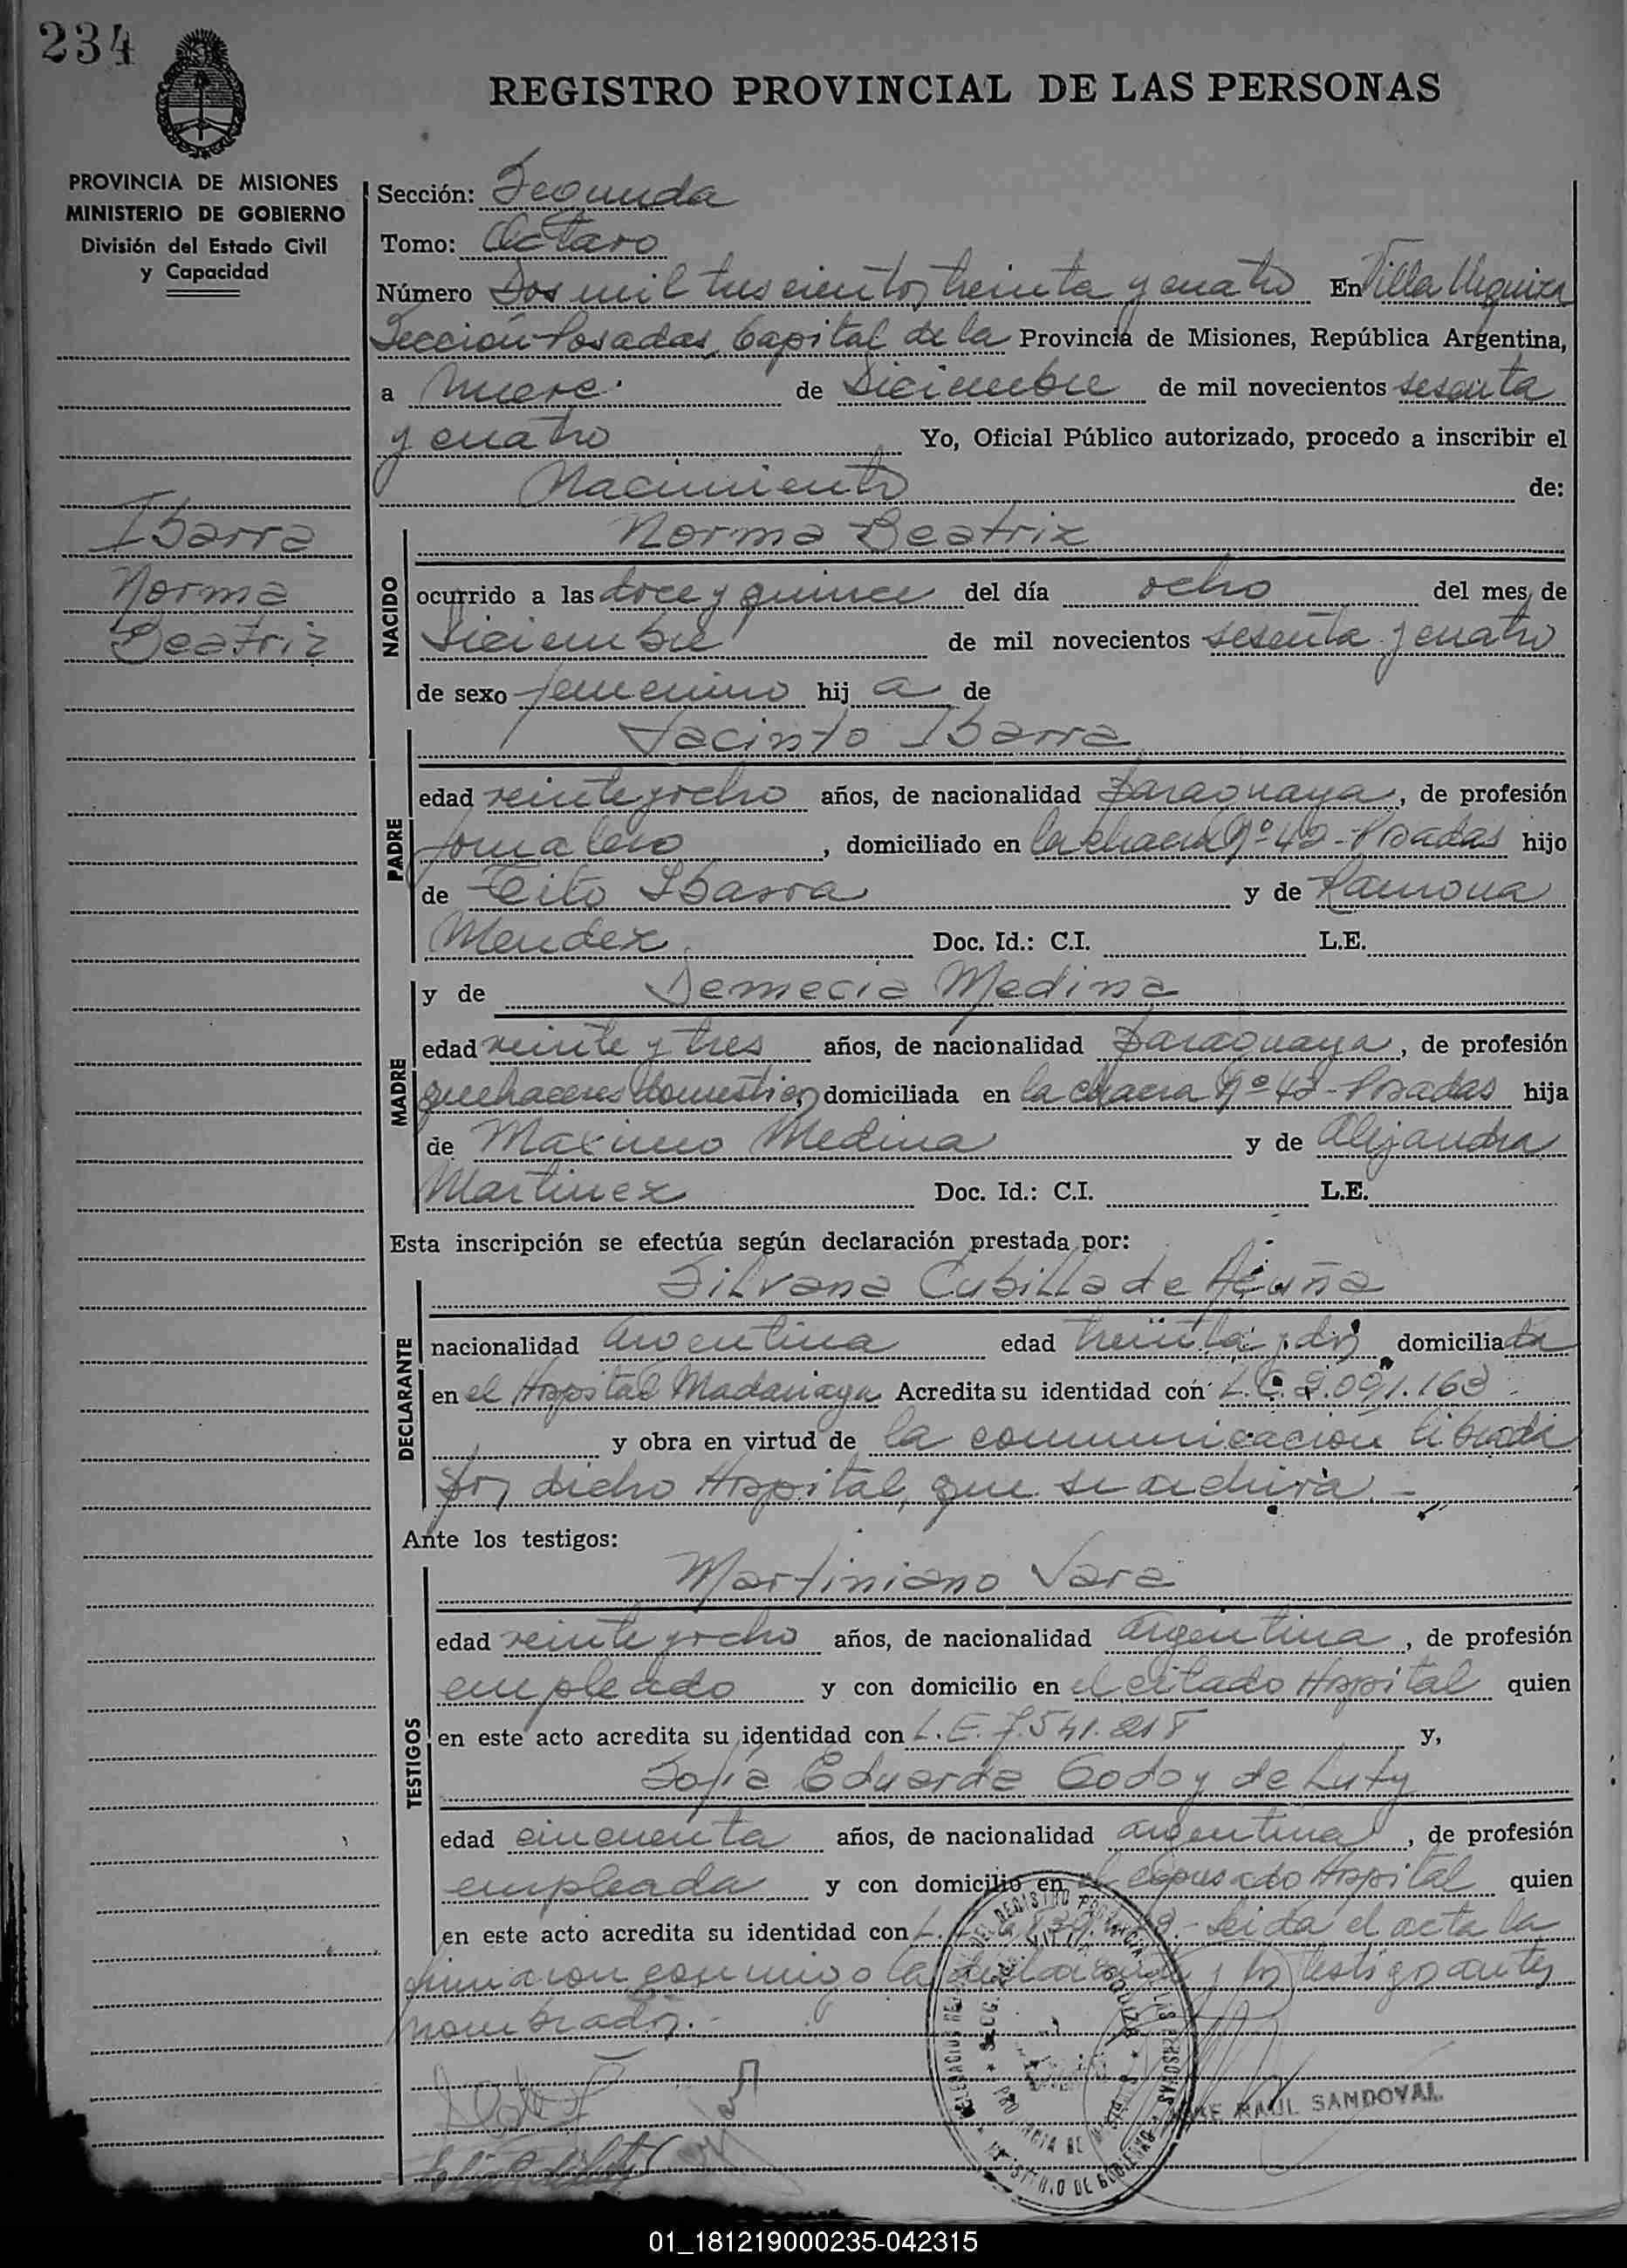 234
REGISTRO PROVINCIAL DE LAS PERSONAS
PROVINCIA DE MISIONES
MINISTERIO DE GOBIERNO
División del Estado Civil
y Capacidad
Sección: Segunda
Tomo: Octavo
Número Dos mil trescientos treinta y cuatro En Villa Urquiza
Sección Posadas, Capital de la Provincia de Misiones, República Argentina,
a nueve de Diciembre de mil novecientos sesenta
y cuatro Yo, Oficial Público autorizado, procedo a inscribir el
Nacimiento de:
Ibarra
Norma
Beatriz
NACIDO
Norma Beatriz
ocurrido a las doce y quince del día ocho del mes de
Diciembre de mil novecientos sesenta y cuatro
de sexo femenino hij a de
PADRE
Jacinto Ibarra
edad veinte y ocho años, de nacionalidad Paraguaya, de profesión
Jornalero, domiciliado en la chacra Nº 42 - Posadas hijo
de Tito Ibarra y de Ramona
Mendez Doc. Id.: C.I. L.E.
MADRE
y de Demecia Medina
edad veinte y tres años, de nacionalidad Paraguaya, de profesión
quehaceres domesticos domiciliada en la chacra Nº 42 - Posadas hija
de Maximo Medina y de Alejandra
Martinez Doc. Id.: C.I. L.E.
Esta inscripción se efectúa según declaración prestada por:
DECLARANTE
Silvana Cubilla de Acuña
nacionalidad argentina edad treinta y dos domiciliada
en el Hospital Madariaga Acredita su identidad con L.C. 2.091.163
y obra en virtud de la comunicación librada
por dicho Hospital, que se archiva. -
Ante los testigos:
TESTIGOS
Martiniano Vara
edad veinte y ocho años, de nacionalidad argentina, de profesión
empleado y con domicilio en el citado Hospital quien
en este acto acredita su identidad con L.E. 7.541.218 y,
Sofia Eduarda Godoy de Luty
edad cincuenta años, de nacionalidad argentina, de profesión
empleada y con domicilio en el expresado Hospital quien
en este acto acredita su identidad con L. Leida el acta la
firmaron conmigo la declarante y los testigos antes
nombrados. -
REGISTRO PROVINCIAL DE LAS PERSONAS
MINISTERIO DE GOBIERNO
PROVINCIA DE MISIONES
RAUL SANDOVAL
01_181219000235-042315